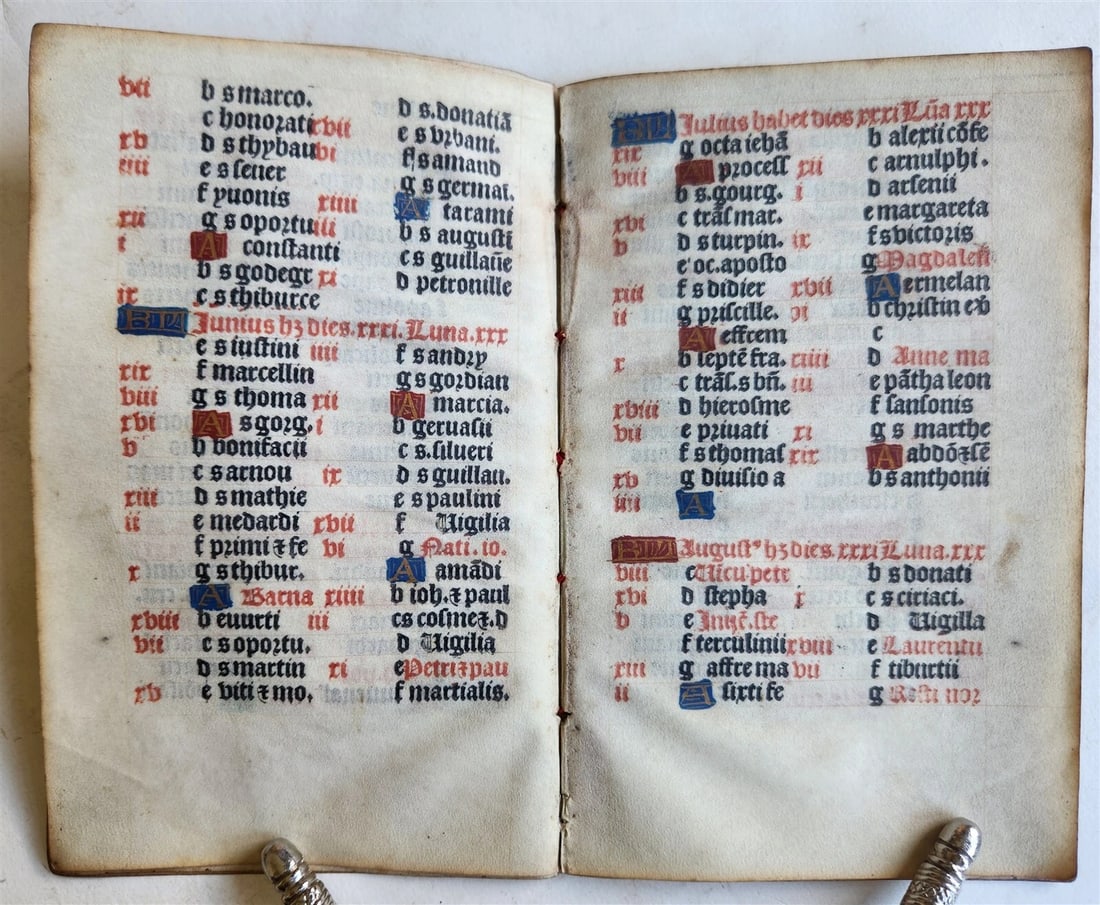 vii b s marco.
c honorati
xv d s thybau
iiii e s sener
f yuonis
xii g s oportu
i A constanti
b s godegr
ix c s thiburce
d s.donatiā
xvii e s vrbani.
vi f s amand
g s germai.
xiiii A tarami
iii b s augusti
c s guillaūe
xi d petronille
KL Junius hꝫ dies.xxxi.Luna.xxx
e s iustini
xix f marcellin
viii g s thoma
xvi A s gorg.
v b bonifacii
c s arnou
xiii d s mathie
ii e medardi
f primi ⁊ fe
x g s thibur.
A Barna
xviii b euurti
vii c s oportu.
d s martin
xv e viti ⁊ mo.
iiii f s andry
g s gordian
xii A marcia.
i b geruasii
c s.silueri
ix d s guillau.
e s paulini
xvii f Uigilia
vi g Nati.io.
A amādi
xiiii b ioh.⁊ paul
iii c s cosme⁊.d
d Uigilia
xi e Petri⁊pau
f martialis.
KL Julius habet dies xxxi Lūa xxx
xix g octa iehā
viii A process
b s.gourg.
xvi c trās mar.
v d s turpin.
e oc.aposto
xiii f s didier
ii g priscille.
A effcem
x b leptē fra.
c trās.s bñ.
xviii d hierosme
vii e priuati
f s thomas
xv g diuisio a
iiii A
b alexii cōfe
xii c arnulphi.
i d arsenii
e margareta
ix f s victoris
g Magdalen
xvii A ermelan
vi b christin e v
c
xiiii d Anne ma
iii e pātha leon
f sansonis
xi g s marthe
xix A abdō⁊sē
b s anthonii
KL August⁹ hꝫ dies.xxxi Luna.xxx
viii c Uīcu petr
xvi d stepha
v e Inuc̄.ste
f terculinii
xiii g affre ma
ii A sixti fe
b s donati
x c s ciriaci.
d Uigilla
xviii e Laurentii
vii f tiburtii
g